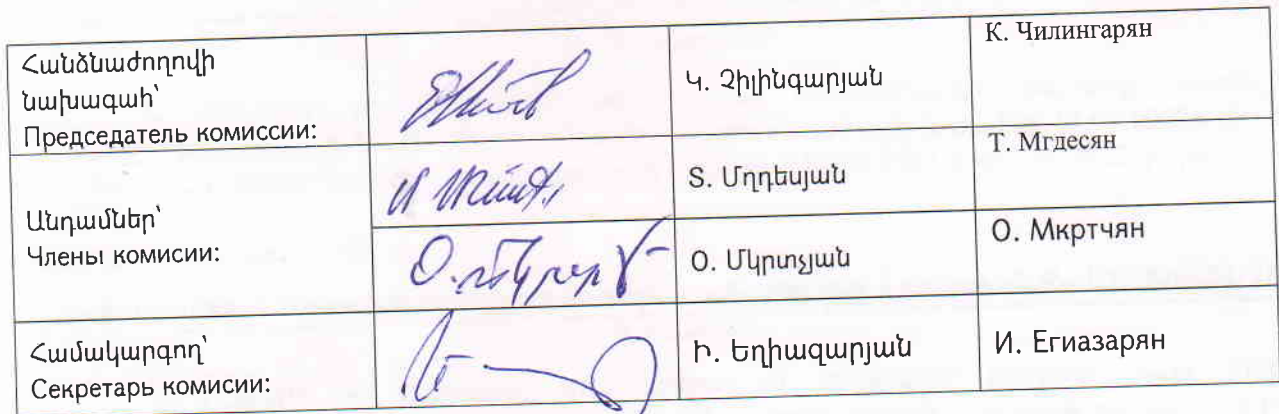 Հանձնաժողովի
նախագահ՝
Председатель комиссии:
Կ. Չիլինգարյան
К. Чилингарян
Անդամներ՝
Члены комисии:
Տ. Մղդեսյան
Т. Мгдесян
Օ. Մկրտչյան
О. Мкртчян
Համակարգող՝
Секретарь комисии:
Ի. Եղիազարյան
И. Егиазарян